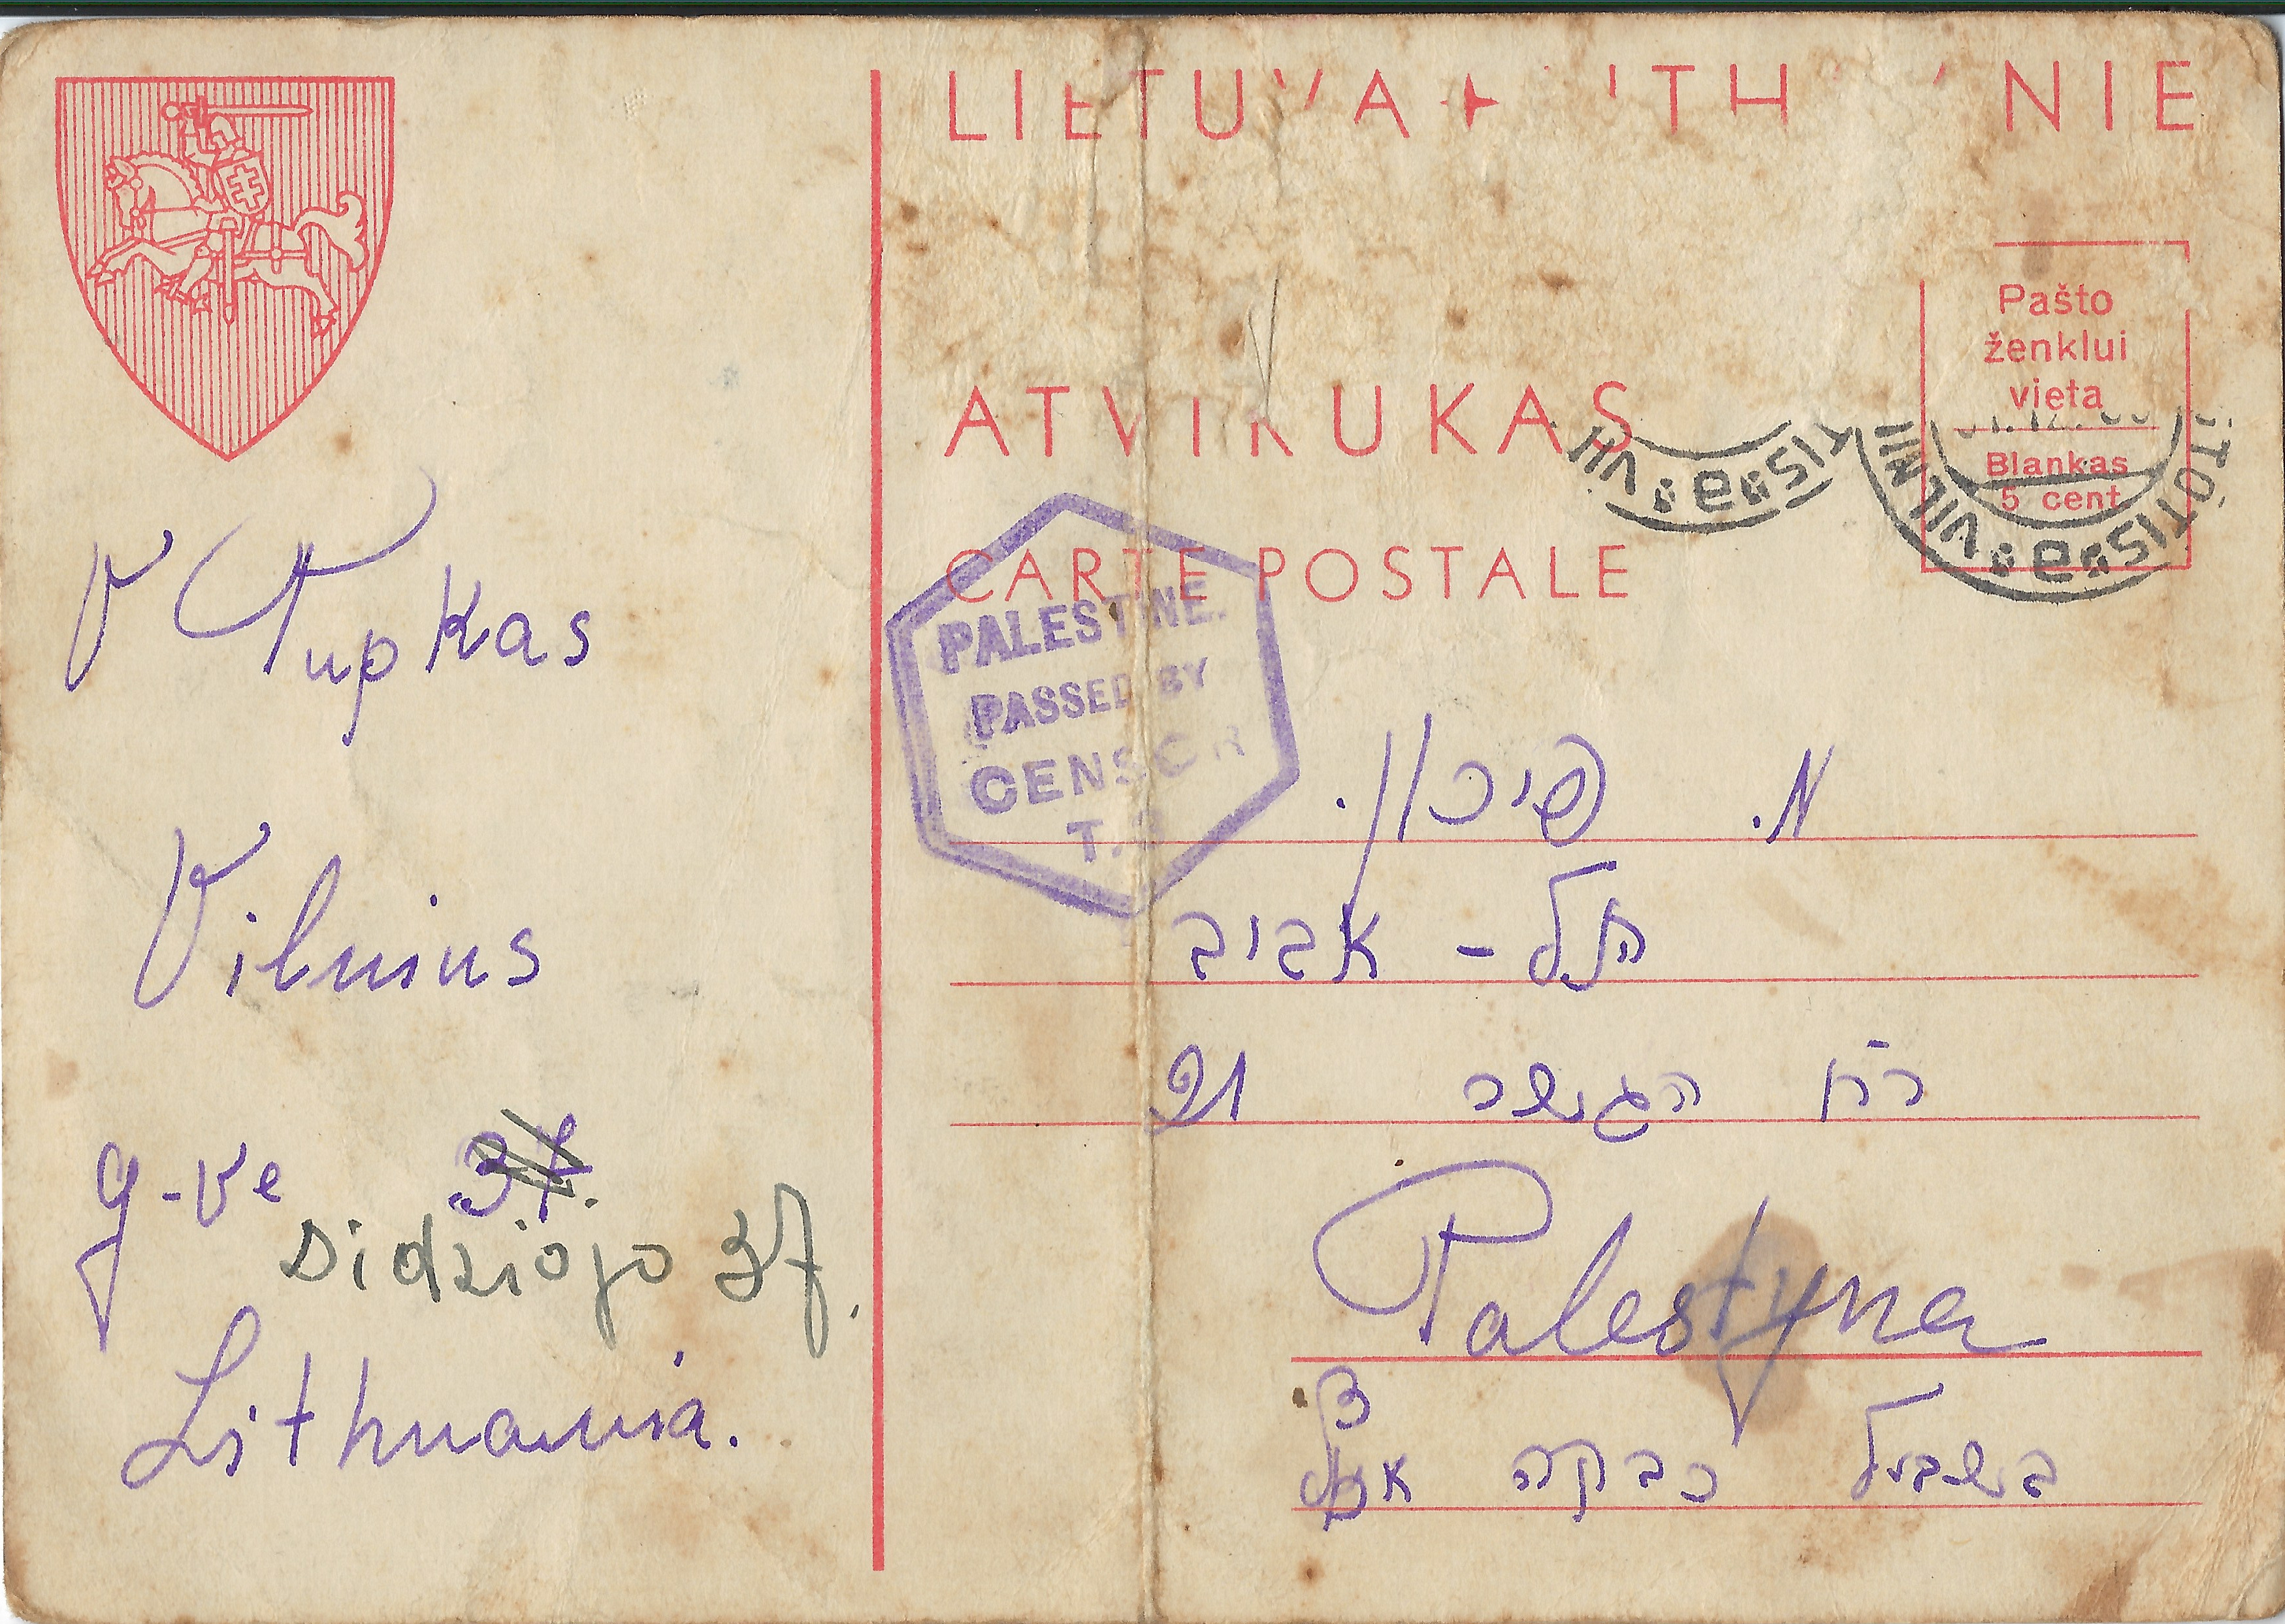 LIETUVA LITHUANIE
ATVIRUKAS
CARTE POSTALE
Pašto
ženklui
vieta
Blankas
5 cent
VILNIUS
PALESTINE.
PASSED BY
CENSOR
T.
V Tupkas
Vilnius
g-ve 37.
Didziojo 37.
Lithuania.
מ. פיכמן.
תל-אביב
רח הגשר 21
Palestyna
בשביל רבקה